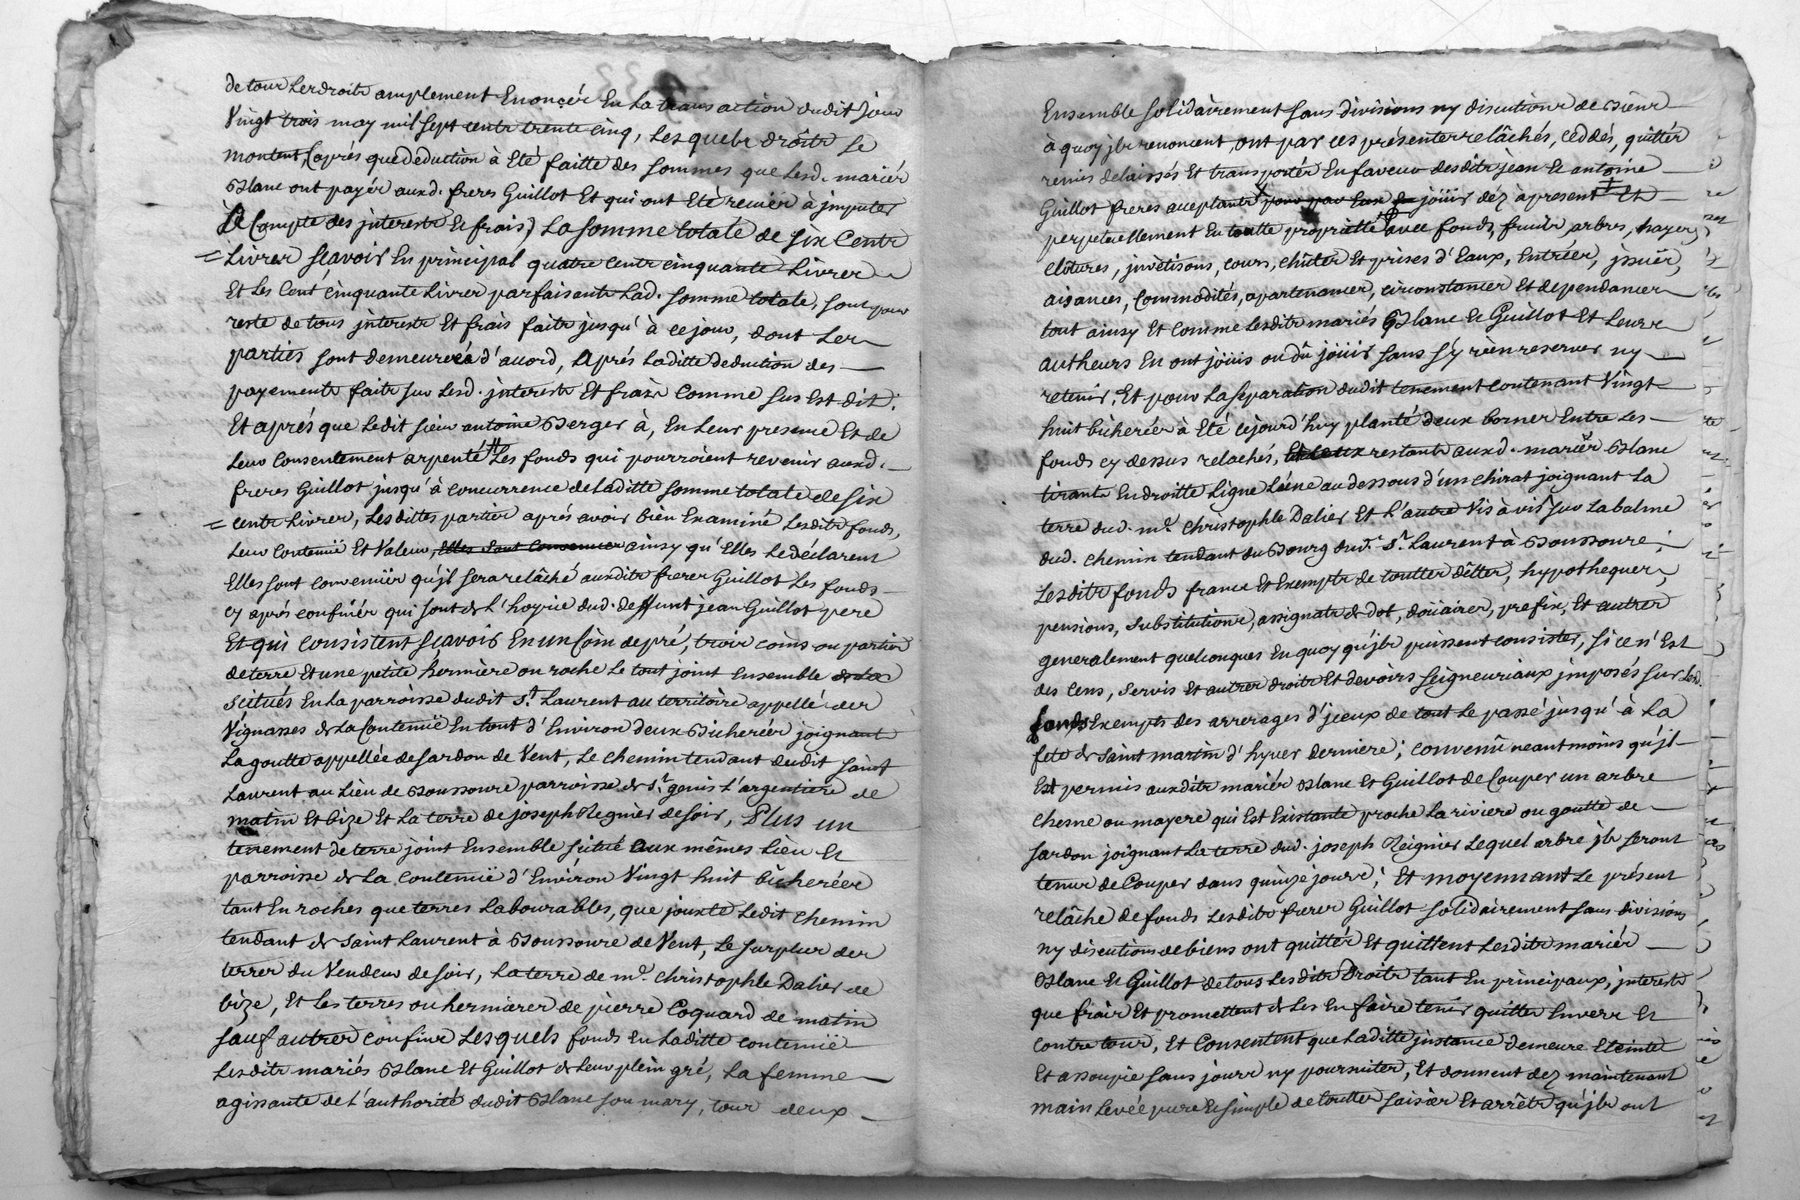 de tous les droits amplement Enoncés En La transaction dudit jour
Vingt trois may mil sept cents trente cinq, Les quels droits se
montent (aprés que deduction à Eté faitte des sommes que lesd. mariés
Blanc ont payés auxd. freres Guillot Et qui ont Eté
Compte des jnterests Et frais) La somme totale de six Cents
= Livres scavoir En principal quatre cents cinquante Livres
Et Les Cent cinquante Livres parfaisants Lad. somme totale, sont pour
reste de tous jnterests Et frais faits jusqu'à ce jour, dont Les
parties sont demeureés d'acord, aprés Laditte deduction des
payements faits sur Lesd. jnterests Et frais Comme sus Est dit;
Et aprés que Ledit sieur antoine Berger à, En Leur presence Et de
Leur consentement arpenté Les fonds qui pourroient revenir auxd.
freres Guillot jusqu'à concurrence de Laditte somme totale de six
= cents Livres, Lesdittes parties aprés avoir bien Examiné Lesdits fonds,
Leur contenuë Et Valeur, Elles sont convenues ainsy qu'Elles Le déclarent
Elles sont convenuës qu'jl sera relâché auxdits freres Guillot Les fonds
cy aprés confinés qui sont de L'hoyrie dud. deffunt jean Guillot pere
Et qui consistent scavoir En un Coin de pré, trois coins ou parties
de terre Et une petite hermière ou roche Le tout joint Ensemble
scitués En La parroisse dudit St. Laurent au territoire appellé des
Vignasses de La Contenuë En tout d'Environ deux Bicherées joignant
La goutte appellée de sardon de Vent, Le chemin tendant dudit saint
Laurent au Lieu de Boussoure parroisse de St. genis L'argentiere de
matin Et bize Et La terre de joseph Regnier de soir, Plus un
tenement de terre joint Ensemble scitué aux mêmes Lieu Et
parroisse de La contenuë d'Environ Vingt huit bicherées
tant En roches que terres Labourables, que jouxte Ledit chemin
tendant de saint Laurent à Boussoure de Vent, Le surplus des
terres du Vendeur de soir, La terre de me. christophle Dalier de
bize, Et les terres ou hermiares de pierre Coquard de matin
sauf autres confins Lesquels fonds En Laditte contenuë
Lesdits mariés Blanc Et Guillot de Leur plein gré, La femme
agissante de L'authorité dudit Blanc son mary, tous deux
Ensemble solidairement sans divisions ny discutions de biens
à quoy jls renoncent, ont par ces présentes relâchés, ceddés, quittés
remis delaissés Et transportés En faveur desdits jean Et antoine
Guillot freres acceptants pour par Eux En joüir déz à present Et
perpetuellement En toutte proprieté avec fonds, fruits, arbres, hayes,
clôtures, jnvetisons, cours, chûttes Et prises d'Eaux, Entrées, jssuës,
aisances, Commodités, apartenances, circonstances Et dependances
tout ainsy Et comme Lesdits mariés Blanc Et Guillot Et Leurs
autheurs En ont joüis ou dû joüir sans s'y rien reserver ny
retenir, Et pour La separation dudit tenement contenant Vingt
huit bicherées à Eté cejourd'huy planté deux bornes Entre Les
fonds cy dessus relachés, restants auxd. mariés Blanc
tirants En droitte Ligne L'une au dessous d'un chirat joignant La
terre dud. me. Christophle Dalier Et L'autre Vis à vis sur La balme
dud. chemin tendant du Bourg dud. St. Laurent à Boussoure;
Lesdits fonds francs Et Exempts de touttes dêttes, hypotheques,
pensions, substitutions, assignats de dot, doüaires, prefix, Et autres
generalement quelconques En quoy qu'jls puissent consister, si ce n'Est
des cens, servis Et autres droits Et devoirs seigneuriaux jmposés sur Lesd.
fonds Exempts des arrerages d'jceux de tout Le passé jusqu'à La
fete de saint martin d'hyver derniere; convenû neantmoins qu'jl
Est permis auxdits mariés Blanc Et Guillot de Couper un arbre
chesne ou mayere qui Est Existante proche La riviere ou goutte de
sardon joignant La terre dud. joseph Reignier Lequel arbre jls seront
tenus de Couper dans quinze jours; Et moyennant Le présent
relâche de fonds Lesdits freres Guillot solidairement sans divisions
ny discutions de biens ont quittés Et quittent Lesdits mariés
Blanc Et Guillot de tous Lesdits Droits tant En principaux, jnterests
que frais Et promettent de Les En faire tenir quittes Envers Et
contre tous, Et Consentent que Laditte jnstance demeure Eteinte
Et assoupie sans jours ny poursuittes, Et donnent dez maintenant
main Levée pure Et simple de touttes saisies Et arrêts qu'jls ont